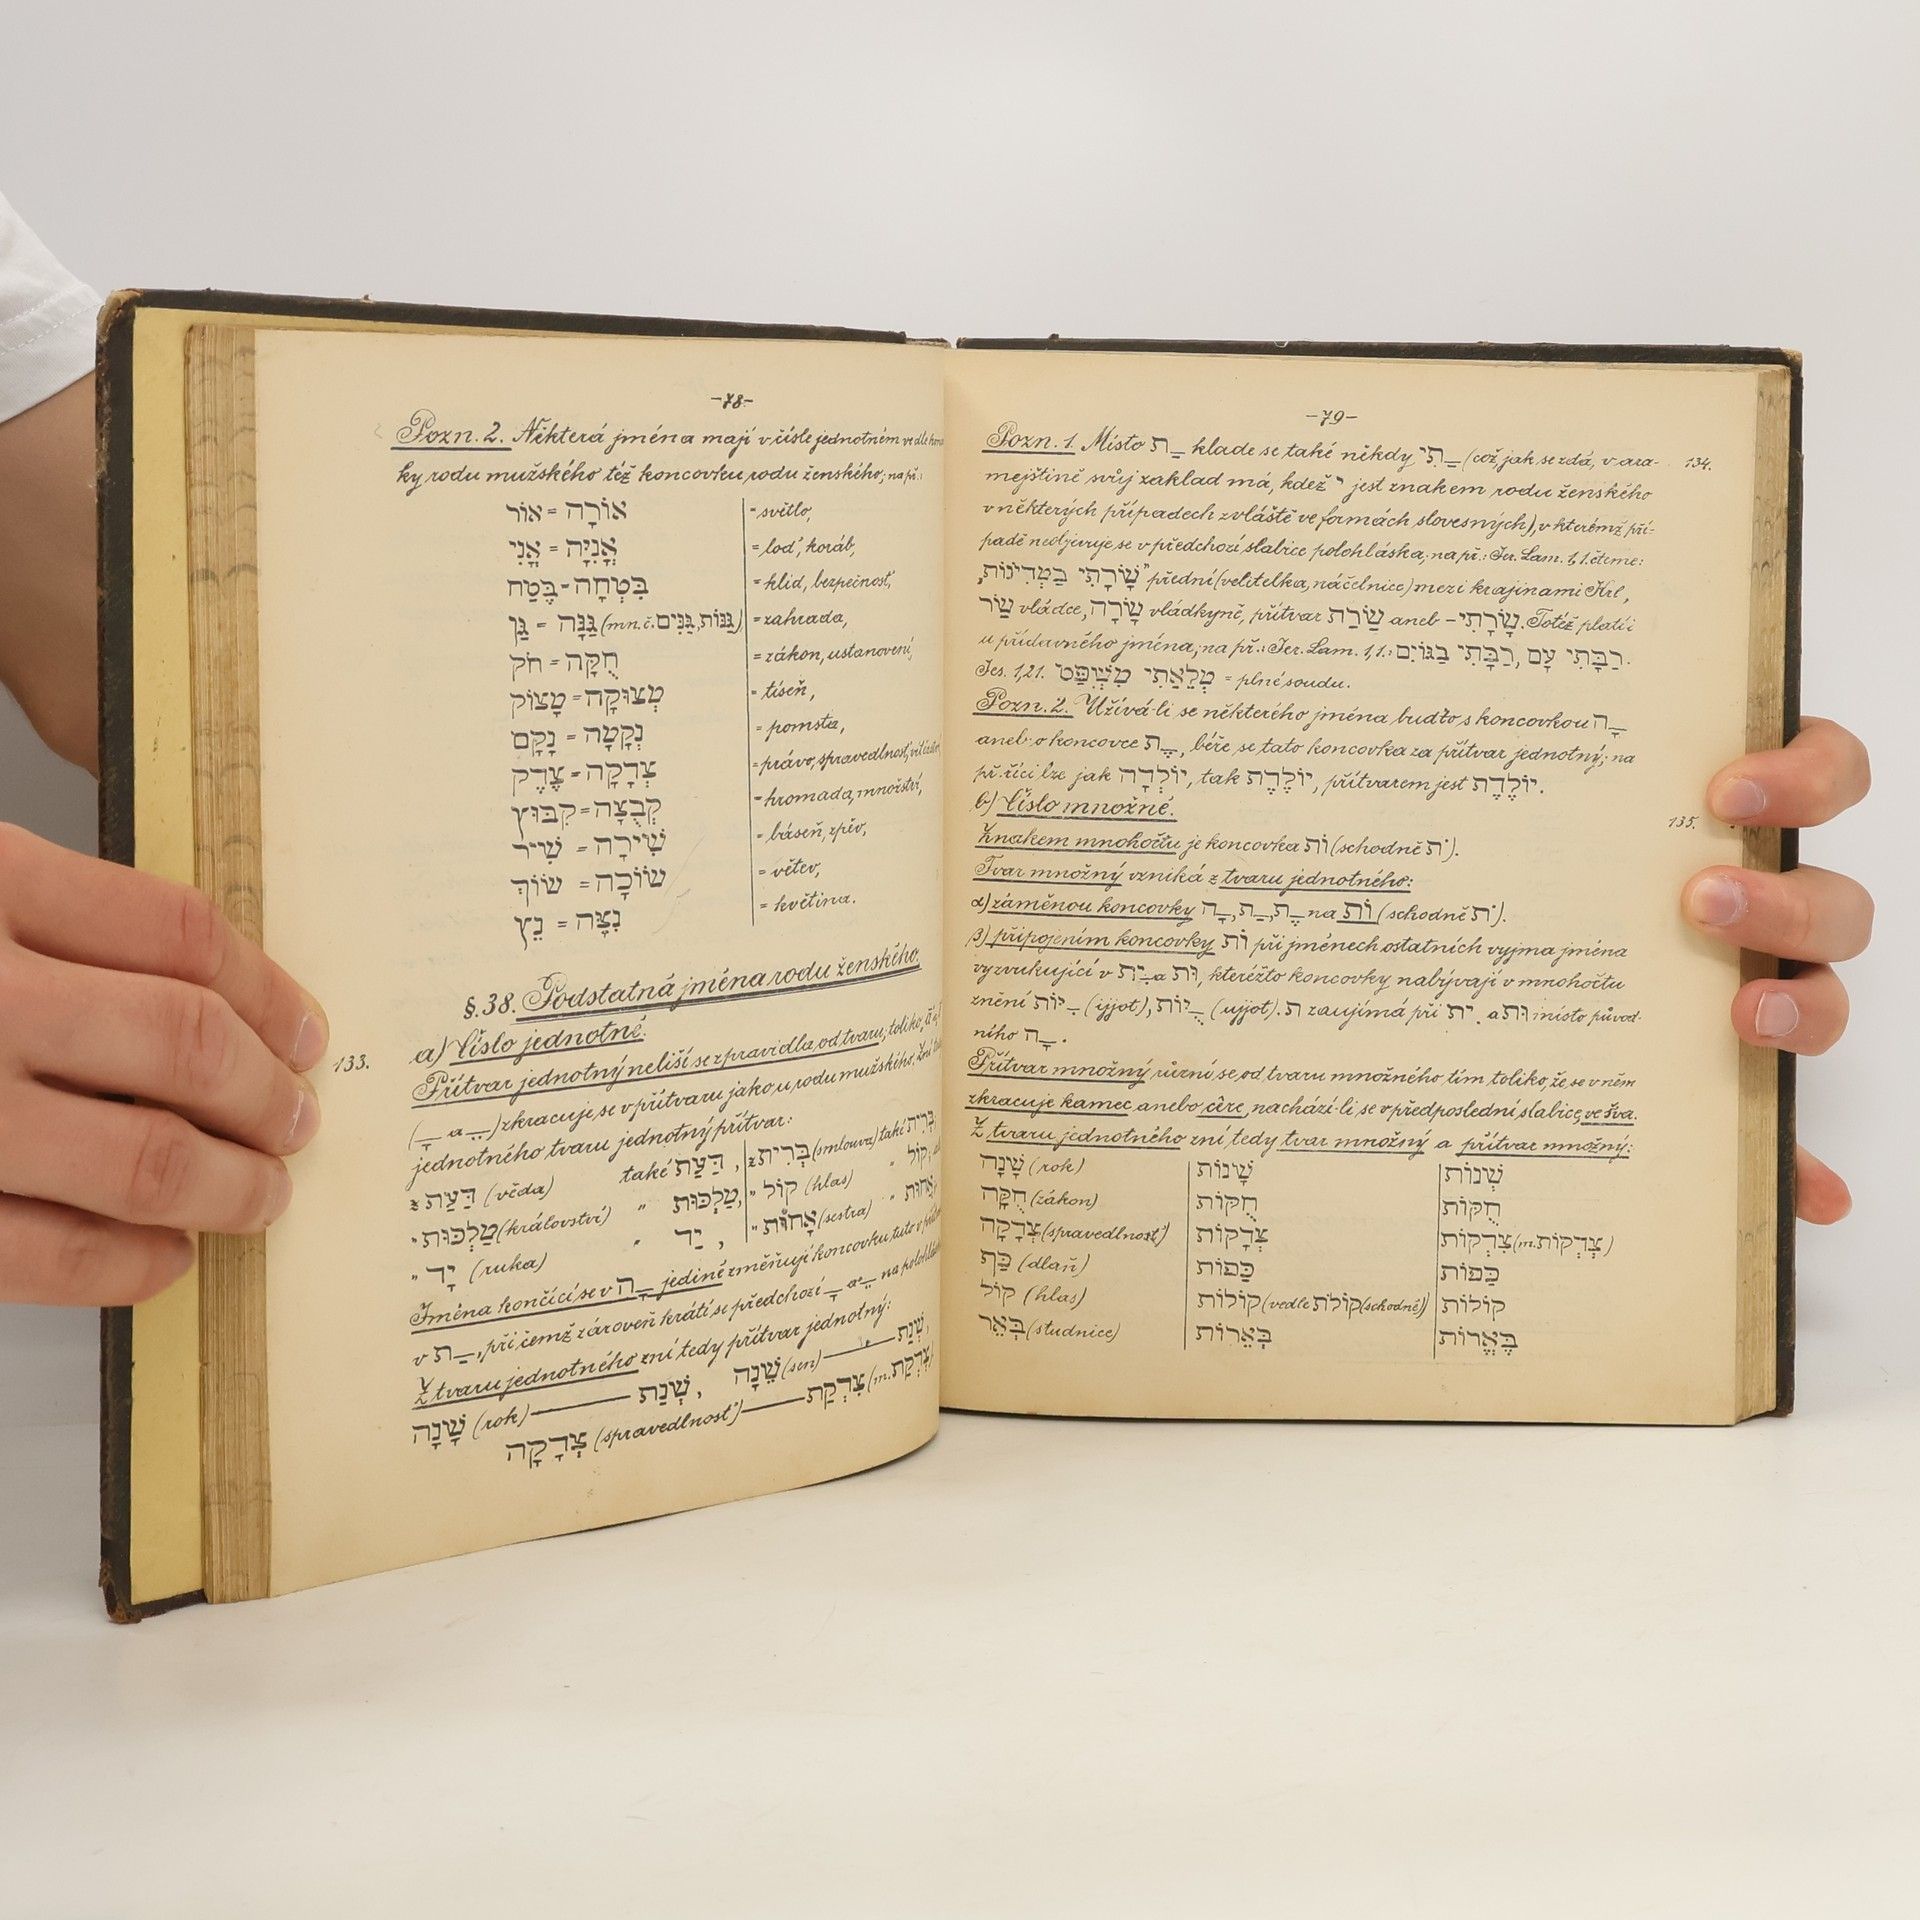 -78-
Pozn. 2. Některá jména mají v čísle jednotném vedle kon
ky rodu mužského též koncovku rodu ženského; na př.:
אוֹרָה = אוֹר = světlo,
אֳנִיָּה = אֳנִי = loď, koráb,
בִּטְחָה = בֶּטַח = klid, bezpečnosť,
גַּנָּה = גַּן (mn.č. גַּנִּים, גַּנּוֹת) = zahrada,
חֻקָּה = חֹק = zákon, ustanovení,
מְצוּקָה = מָצוֹק = tíseň,
נְקָמָה = נָקָם = pomsta,
צְדָקָה = צֶדֶק = právo, spravedlnosť,
קְבֻצָה = קִבּוּץ = hromada, množství,
שִׁירָה = שִׁיר = báseň, zpěv,
שׂוֹכָה = שׂוֹךְ = větev,
נִצָּה = נֵץ = květina.
§. 38. Podstatná jména rodu ženského.
133.
a) Číslo jednotné.
Přítvar jednotný neliší se zpravidla od tvaru; toliko,
(ָ a ֵ) zkracuje se v přítvaru jako u rodu mužského. Zní
jednotného tvaru jednotný přítvar:
z דַּעַת (věda) také דַּעַת, z בְּרִית (smlouva) také בְּרִית
" מַלְכוּת (království) " מַלְכוּת, " קוֹל (hlas) " קוֹל,
" יָד (ruka) " יַד, " אָחוֹת (sestra) " אֲחוֹת
Jména končící se v ָה jedině změňují koncovku tuto v
v ַת, při čemž zároveň krátí se předchozí ָ a ֵ na
Z tvaru jednotného zní tedy přítvar jednotný:
שָׁנָה (rok) — שְׁנַת, שֵׁנָה (sen) — שְׁנַת,
צְדָקָה (spravedlnosť) — צִדְקַת (m. צְדְקַת)
-79-
Pozn. 1. Místo ַת klade se také někdy ַתִי (což, jak se zdá, v ara- 134.
mejštině svůj zaklad má, kdež י jest znakem rodu ženského
v některých případech zvláště ve formách slovesných), v kterémž pří-
padě neobjevuje se v předchozí slabice polohláska; na př.: Jer. Lam. 1,1. čteme:
שָׂרָתִי בַמְּדִינוֹת" přední (velitelka, náčelnice) mezi krajinami Hrl,
שַׂר vládce, שָׂרָה vládkyně, přítvar שָׂרַת aneb – שָׂרָתִי. Totéž platí i
u přídavného jména; na př.: Jer. Lam. 1,1.: רַבָּתִי עָם, רַבָּתִי בַגּוֹיִם.
Jes. 1,21. מְלֵאֲתִי מִשְׁפָּט = plné soudu.
Pozn. 2. Užívá-li se některého jména buďto s koncovkou ָה
aneb o koncovce ֶת, béře se tato koncovka za přítvar jednotný; na
př. říci lze jak יוֹלְדָה, tak יוֹלֶדֶת, přítvarem jest יוֹלֶדֶת.
b) Číslo množné.
135.
Znakem mnohočtu je koncovka וֹת (schodně ֹת).
Tvar množný vzniká z tvaru jednotného:
α) záměnou koncovky ָה, ַת, ֶת na וֹת (schodně ֹת).
β) připojením koncovky וֹת při jménech ostatních vyjma jména
vyzvukující v ִית a וּת, kteréžto koncovky nabývají v mnohočtu
znění ִיּוֹת (ijjot), ֻיּוֹת (ujjot). ת zaujímá při ִית a וּת místo původ-
ního ָה.
Přítvar množný různí se od tvaru množného tím toliko, že se v něm
zkracuje kamec anebo cêre, nachází-li se v předposlední slabice, ve šva.
Z tvaru jednotného zní tedy tvar množný a přítvar množný:
שָׁנָה (rok) שָׁנוֹת שְׁנוֹת
חֻקָּה (zákon) חֻקּוֹת חֻקּוֹת
צְדָקָה (spravedlnosť) צְדָקוֹת צִדְקוֹת (m. צְדְקוֹת)
כַּף (dlaň) כַּפּוֹת כַּפּוֹת
קוֹל (hlas) קוֹלוֹת (vedle קוֹלֹת (schodně)) קוֹלוֹת
בְּאֵר (studnice) בְּאֵרוֹת בֶּאֱרוֹת